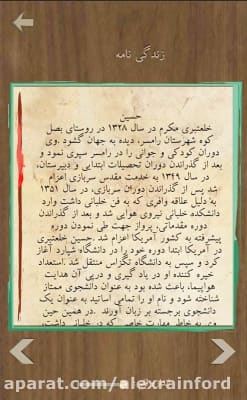 زندگی نامه
حسین
خلعتبری مکرم در سال ۱۳۲۸ در روستای بصل
کوه شهرستان رامسر، دیده به جهان گشود .وی
دوران کودکی و جوانی را در رامسر سپری نمود و
بعد از گذراندن دوران تحصیلات ابتدایی و دبیرستان،
در سال ۱۳۴۹ به خدمت مقدس سربازی اعزام
شد پس از گذراندن دوران سربازی، در سال ۱۳۵۱
به دلیل علاقه وافری که به فن خلبانی داشت وارد
دانشکده خلبانی نیروی هوایی شد و بعد از گذراندن
دوره مقدماتی، پرواز جهت طی نمودن دوره
پیشرفته به کشور آمریکا اعزام شد .حسین خلعتبری
در آمریکا ابتدا دوره خود را در دانشگاه شپارد آغاز
کرد و سپس به دانشگاه تگزاس منتقل شد .استعداد
خیره کننده او در یاد گیری و درپی آن هدایت
هواپیما، باعث شده بود به عنوان دانشجوی ممتاز
شناخته شود و نام او را تمامی اساتید به عنوان یک
دانشجوی برجسته بر زبان آورند .در همین حین
وی به خاطر مهارت خاصی که در خلبانی داشت،
aparat.com/alexrainford